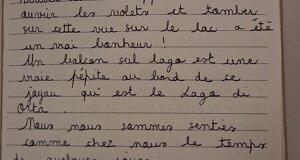 ouvrir les volets et tomber
sur cette vue sur le lac a été
un vrai bonheur !
Un balcon sul lago est une
vraie pépite au bord de ce
joyau qu'est le Lago di
Orta.
Nous nous sommes senties
comme chez nous le temps
de quelques jours